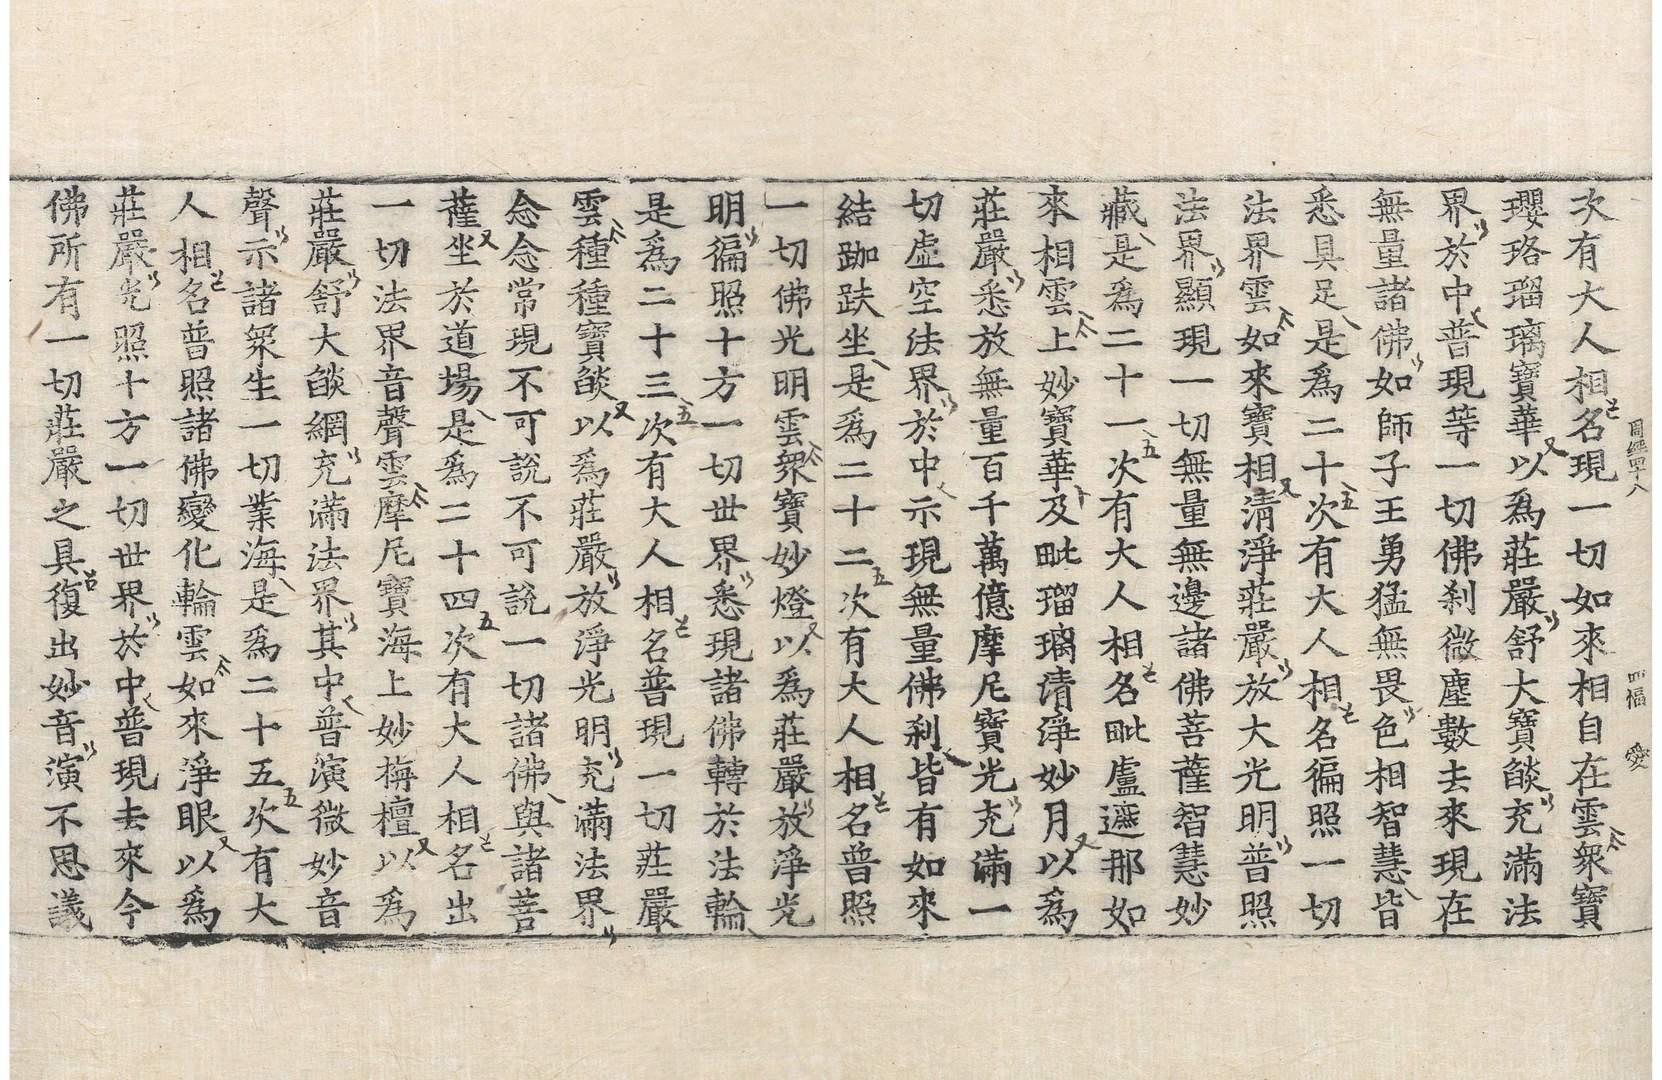 周經四十八 四幅 愛
次有大人相名現一切如來相自在雲衆寶
瓔珞瑠璃寶華以爲莊嚴舒大寶燄充滿法
界於中普現等一切佛刹微塵數去來現在
無量諸佛如師子王勇猛無畏色相智慧皆
悉具足是爲二十次有大人相名徧照一切
法界雲如來寶相清淨莊嚴放大光明普照
法界顯現一切無量無邊諸佛菩薩智慧妙
藏是爲二十一次有大人相名毗盧遮那如
來相雲上妙寶華及毗瑠璃清淨妙月以爲
莊嚴悉放無量百千萬億摩尼寶光充滿一
切虛空法界於中示現無量佛刹皆有如來
結跏趺坐是爲二十二次有大人相名普照
一切佛光明雲衆寶妙燈以爲莊嚴放淨光
明徧照十方一切世界悉現諸佛轉於法輪
是爲二十三次有大人相名普現一切莊嚴
雲種種寶燄以爲莊嚴放淨光明充滿法界
念念常現不可說不可說一切諸佛與諸菩
薩坐於道場是爲二十四次有大人相名出
一切法界音聲雲摩尼寶海上妙栴檀以爲
莊嚴舒大燄網充滿法界其中普演微妙音
聲示諸衆生一切業海是爲二十五次有大
人相名普照諸佛變化輪雲如來淨眼以爲
莊嚴光照十方一切世界於中普現去來今
佛所有一切莊嚴之具復出妙音演不思議